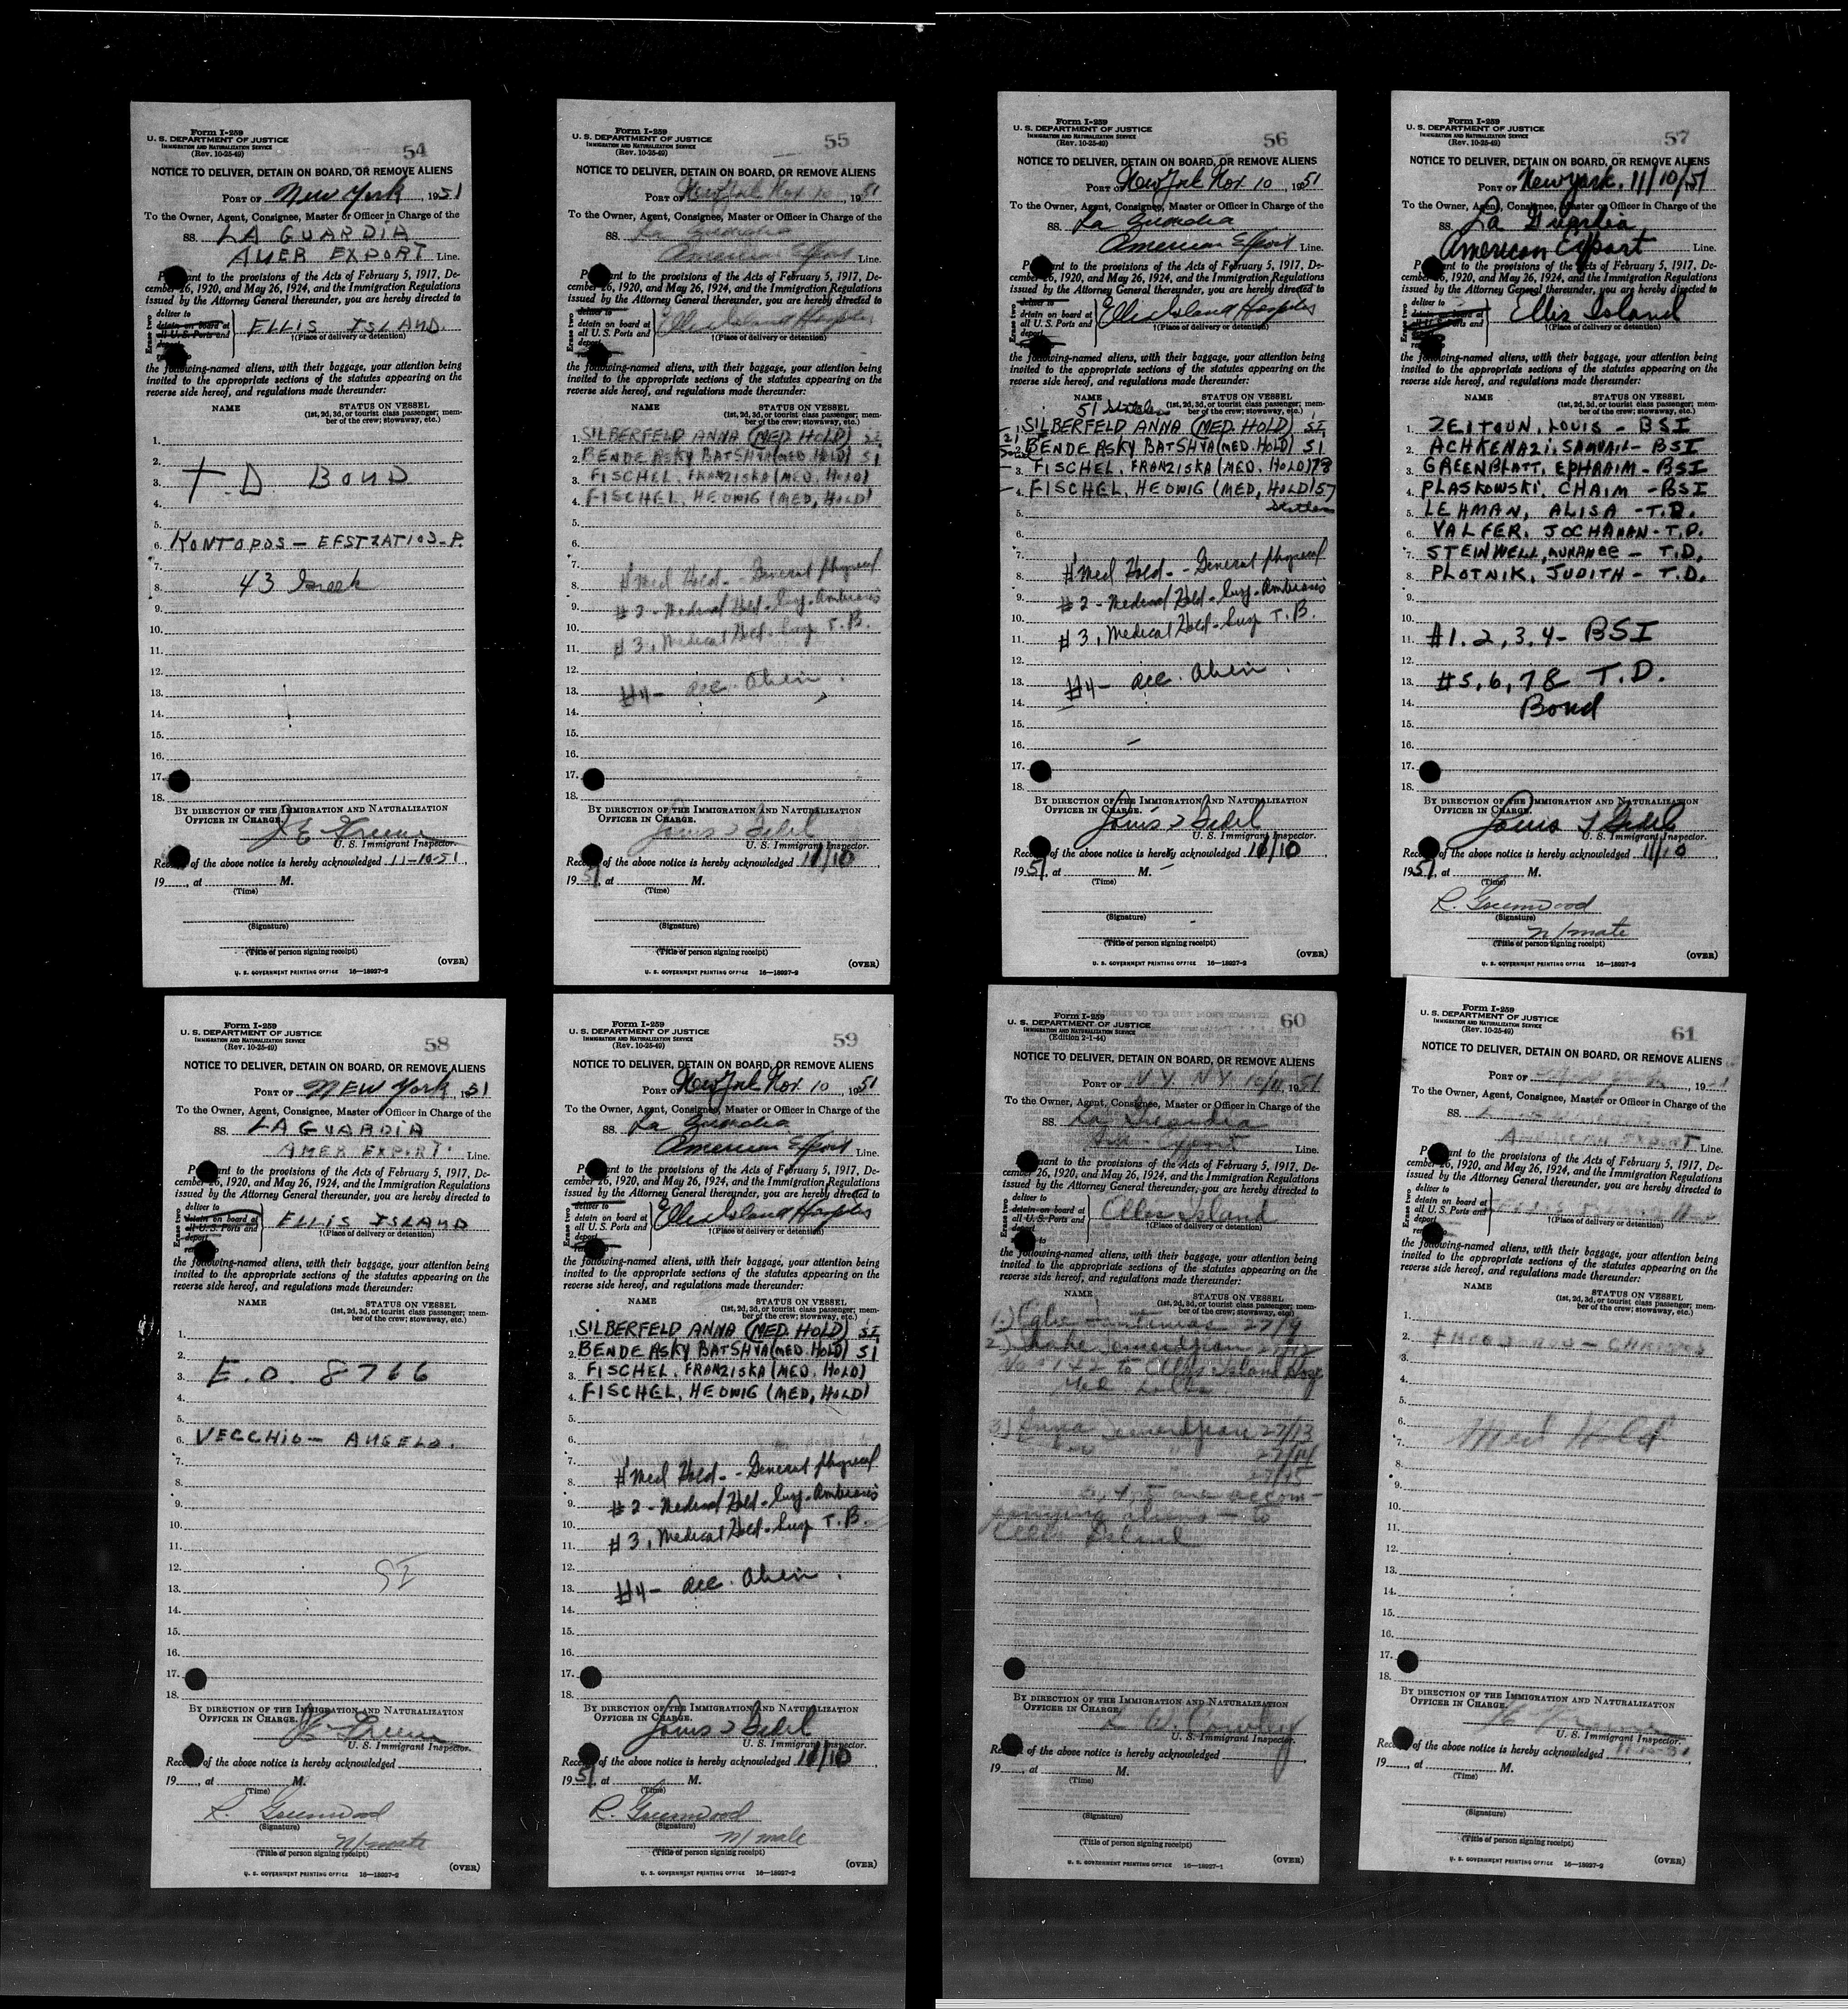 Form I-259
U. S. DEPARTMENT OF JUSTICE
IMMIGRATION AND NATURALIZATION SERVICE
(Rev. 10-25-49)
54
NOTICE TO DELIVER, DETAIN ON BOARD, OR REMOVE ALIENS
PORT OF New York, 1951
To the Owner, Agent, Consignee, Master or Officer in Charge of the
SS. LA GUARDIA
AMER EXPORT Line.
P ant to the provisions of the Acts of February 5, 1917, De-
cember 26, 1920, and May 26, 1924, and the Immigration Regulations
issued by the Attorney General thereunder, you are hereby directed to
Erase two
deliver to
detain on board at
all U.S. Ports and
deport
ELLIS ISLAND.
†(Place of delivery or detention)
the following-named aliens, with their baggage, your attention being
invited to the appropriate sections of the statutes appearing on the
reverse side hereof, and regulations made thereunder:
NAME STATUS ON VESSEL
(1st, 2d, 3d, or tourist class passenger; mem-
ber of the crew; stowaway, etc.)
1.
2.
3. T.D. BOND
4.
5.
6. KONTOPOS - EFSTRATIOS-P.
7.
8. 43 Greek
9.
10.
11.
12.
13.
14.
15.
16.
17.
18.
BY DIRECTION OF THE IMMIGRATION AND NATURALIZATION
OFFICER IN CHARGE.
U. S. Immigrant Inspector.
Rec of the above notice is hereby acknowledged 11-10-51
19 , at M.
(Time)
(Signature)
(Title of person signing receipt)
(OVER)
U. S. GOVERNMENT PRINTING OFFICE 16—18027-2
Form I-259
U. S. DEPARTMENT OF JUSTICE
IMMIGRATION AND NATURALIZATION SERVICE
(Rev. 10-25-49)
55
NOTICE TO DELIVER, DETAIN ON BOARD, OR REMOVE ALIENS
PORT OF New York Nov. 10, 1951
To the Owner, Agent, Consignee, Master or Officer in Charge of the
SS. La Guardia
American Export Line.
P ant to the provisions of the Acts of February 5, 1917, De-
cember 26, 1920, and May 26, 1924, and the Immigration Regulations
issued by the Attorney General thereunder, you are hereby directed to
Erase two
deliver to
detain on board at
all U.S. Ports and
deport
Ellis Island Hospital
†(Place of delivery or detention)
the following-named aliens, with their baggage, your attention being
invited to the appropriate sections of the statutes appearing on the
reverse side hereof, and regulations made thereunder:
NAME STATUS ON VESSEL
(1st, 2d, 3d, or tourist class passenger; mem-
ber of the crew; stowaway, etc.)
1. SILBERFELD ANNA (MED. HOLD) SI
2. BENDE ASKY BATSHVA (MED. HOLD) SI
3. FISCHEL, FRANZISKA (MED. HOLD)
4. FISCHEL, HEDWIG (MED, HOLD)
5.
6.
7.
8. #1 Med Hold. - General physical
9. #2 - Medical Hold -
10.
11. #3, Medical Hold - Susp T.B.
12.
13. #4 - acc. Alien.
14.
15.
16.
17.
18.
BY DIRECTION OF THE IMMIGRATION AND NATURALIZATION
OFFICER IN CHARGE.
U. S. Immigrant Inspector.
Rec of the above notice is hereby acknowledged 11/10
1951, at M.
(Time)
(Signature)
(Title of person signing receipt)
(OVER)
U. S. GOVERNMENT PRINTING OFFICE 16—18027-2
Form I-259
U. S. DEPARTMENT OF JUSTICE
IMMIGRATION AND NATURALIZATION SERVICE
(Rev. 10-25-49)
56
NOTICE TO DELIVER, DETAIN ON BOARD, OR REMOVE ALIENS
PORT OF New York Nov. 10, 1951
To the Owner, Agent, Consignee, Master or Officer in Charge of the
SS. La Guardia
American Export Line.
P ant to the provisions of the Acts of February 5, 1917, De-
cember 26, 1920, and May 26, 1924, and the Immigration Regulations
issued by the Attorney General thereunder, you are hereby directed to
Erase two
deliver to
detain on board at
all U.S. Ports and
deport
Ellis Island Hospital
†(Place of delivery or detention)
the following-named aliens, with their baggage, your attention being
invited to the appropriate sections of the statutes appearing on the
reverse side hereof, and regulations made thereunder:
NAME STATUS ON VESSEL
(1st, 2d, 3d, or tourist class passenger; mem-
ber of the crew; stowaway, etc.)
51
1. SILBERFELD ANNA (MED. HOLD) SI
2. BENDE ASKY BATSHVA (MED. HOLD) SI
3. FISCHEL, FRANZISKA (MED. HOLD) 78
4. FISCHEL, HEDWIG (MED, HOLD) 57
5.
6.
7.
8. #1 Med Hold. - General physical
9. #2 - Medical Hold -
10.
11. #3, Medical Hold - Susp T.B.
12.
13. #4 - acc. Alien.
14.
15.
16.
17.
18.
BY DIRECTION OF THE IMMIGRATION AND NATURALIZATION
OFFICER IN CHARGE.
U. S. Immigrant Inspector.
Rec of the above notice is hereby acknowledged 11/10
1951, at M.
(Time)
(Signature)
(Title of person signing receipt)
(OVER)
U. S. GOVERNMENT PRINTING OFFICE 16—18027-2
Form I-259
U. S. DEPARTMENT OF JUSTICE
IMMIGRATION AND NATURALIZATION SERVICE
(Rev. 10-25-49)
57
NOTICE TO DELIVER, DETAIN ON BOARD, OR REMOVE ALIENS
PORT OF New York, 11/10/51
To the Owner, Agent, Consignee, Master or Officer in Charge of the
SS. La Guardia
American Export Line.
P ant to the provisions of the Acts of February 5, 1917, De-
cember 26, 1920, and May 26, 1924, and the Immigration Regulations
issued by the Attorney General thereunder, you are hereby directed to
Erase two
deliver to
detain on board at
all U.S. Ports and
deport
Ellis Island
†(Place of delivery or detention)
the following-named aliens, with their baggage, your attention being
invited to the appropriate sections of the statutes appearing on the
reverse side hereof, and regulations made thereunder:
NAME STATUS ON VESSEL
(1st, 2d, 3d, or tourist class passenger; mem-
ber of the crew; stowaway, etc.)
1. ZEITOUN, LOUIS - BSI
2. ACHKENAZI, SAMUAIL - BSI
3. GREENBLATT, EPHRAIM - BSI
4. PLASKOWSKI, CHAIM - BSI
5. LEHMAN, ALISA - T.D.
6. VALFER, JOCHANAN - T.D.
7. STEINWELL, - T.D.
8. PLOTNIK, JUDITH - T.D.
9.
10.
11. #1, 2, 3, 4 - BSI
12.
13. #5, 6, 7 8 T.D.
14. Bond
15.
16.
17.
18.
BY DIRECTION OF THE IMMIGRATION AND NATURALIZATION
OFFICER IN CHARGE.
U. S. Immigrant Inspector.
Rec of the above notice is hereby acknowledged 11/10
1951, at M.
(Time)
R. Greenwood
(Signature)
n/mate
(Title of person signing receipt)
(OVER)
U. S. GOVERNMENT PRINTING OFFICE 16—18027-2
Form I-259
U. S. DEPARTMENT OF JUSTICE
IMMIGRATION AND NATURALIZATION SERVICE
(Rev. 10-25-49)
58
NOTICE TO DELIVER, DETAIN ON BOARD, OR REMOVE ALIENS
PORT OF NEW York, 1951
To the Owner, Agent, Consignee, Master or Officer in Charge of the
SS. LA GUARDIA
AMER EXPORT. Line.
P ant to the provisions of the Acts of February 5, 1917, De-
cember 26, 1920, and May 26, 1924, and the Immigration Regulations
issued by the Attorney General thereunder, you are hereby directed to
Erase two
deliver to
detain on board at
all U.S. Ports and
deport
ELLIS ISLAND
†(Place of delivery or detention)
the following-named aliens, with their baggage, your attention being
invited to the appropriate sections of the statutes appearing on the
reverse side hereof, and regulations made thereunder:
NAME STATUS ON VESSEL
(1st, 2d, 3d, or tourist class passenger; mem-
ber of the crew; stowaway, etc.)
1.
2.
3. E.O. 8766
4.
5.
6. VECCHIO - ANGELO.
7.
8.
9.
10.
11.
12.
13.
14.
15.
16.
17.
18.
BY DIRECTION OF THE IMMIGRATION AND NATURALIZATION
OFFICER IN CHARGE.
U. S. Immigrant Inspector.
Rec of the above notice is hereby acknowledged
19 , at M.
(Time)
R. Greenwood
(Signature)
n/mate
(Title of person signing receipt)
(OVER)
U. S. GOVERNMENT PRINTING OFFICE 16—18027-2
Form I-259
U. S. DEPARTMENT OF JUSTICE
IMMIGRATION AND NATURALIZATION SERVICE
(Rev. 10-25-49)
59
NOTICE TO DELIVER, DETAIN ON BOARD, OR REMOVE ALIENS
PORT OF New York Nov. 10, 1951
To the Owner, Agent, Consignee, Master or Officer in Charge of the
SS. La Guardia
American Export Line.
P ant to the provisions of the Acts of February 5, 1917, De-
cember 26, 1920, and May 26, 1924, and the Immigration Regulations
issued by the Attorney General thereunder, you are hereby directed to
Erase two
deliver to
detain on board at
all U.S. Ports and
deport
Ellis Island Hospital
†(Place of delivery or detention)
the following-named aliens, with their baggage, your attention being
invited to the appropriate sections of the statutes appearing on the
reverse side hereof, and regulations made thereunder:
NAME STATUS ON VESSEL
(1st, 2d, 3d, or tourist class passenger; mem-
ber of the crew; stowaway, etc.)
1. SILBERFELD ANNA (MED. HOLD) SI
2. BENDE ASKY BATSHVA (MED. HOLD) SI
3. FISCHEL, FRANZISKA (MED. HOLD)
4. FISCHEL, HEDWIG (MED, HOLD)
5.
6.
7.
8. #1 Med Hold. - General physical
9. #2 - Medical Hold -
10.
11. #3, Medical Hold - Susp T.B.
12.
13. #4 - acc. Alien.
14.
15.
16.
17.
18.
BY DIRECTION OF THE IMMIGRATION AND NATURALIZATION
OFFICER IN CHARGE.
U. S. Immigrant Inspector.
Rec of the above notice is hereby acknowledged 11/10
1951, at M.
(Time)
R. Greenwood
(Signature)
n/mate
(Title of person signing receipt)
(OVER)
U. S. GOVERNMENT PRINTING OFFICE 16—18027-2
Form I-259
U. S. DEPARTMENT OF JUSTICE
IMMIGRATION AND NATURALIZATION SERVICE
(Edition 2-1-44)
60
NOTICE TO DELIVER, DETAIN ON BOARD, OR REMOVE ALIENS
PORT OF N.Y. N.Y. 1951
To the Owner, Agent, Consignee, Master or Officer in Charge of the
SS. La Guardia
Line.
ant to the provisions of the Acts of February 5, 1917, De-
cember 26, 1920, and May 26, 1924, and the Immigration Regulations
issued by the Attorney General thereunder, you are hereby directed to
Erase two
deliver to
detain on board at
all U.S. Ports and
deport
to
Ellis Island
†(Place of delivery or detention)
the following-named aliens, with their baggage, your attention being
invited to the appropriate sections of the statutes appearing on the
reverse side hereof, and regulations made thereunder:
NAME STATUS ON VESSEL
(1st, 2d, 3d, or tourist class passenger; mem-
ber of the crew; stowaway, etc.)
1.) 27/9
2.) 27/12
to Ellis Island Hosp
3.) 27/13
27/14
27/15
are accom-
panying aliens - to
Ellis Island
BY DIRECTION OF THE IMMIGRATION AND NATURALIZATION
OFFICER IN CHARGE.
U. S. Immigrant Inspector.
Re of the above notice is hereby acknowledged
19 , at M.
(Time)
(Signature)
(Title of person signing receipt)
(OVER)
U. S. GOVERNMENT PRINTING OFFICE 16—18027-1
Form I-259
U. S. DEPARTMENT OF JUSTICE
IMMIGRATION AND NATURALIZATION SERVICE
(Rev. 10-25-49)
61
NOTICE TO DELIVER, DETAIN ON BOARD, OR REMOVE ALIENS
PORT OF , 19
To the Owner, Agent, Consignee, Master or Officer in Charge of the
SS.
AMERICAN EXPORT Line.
P ant to the provisions of the Acts of February 5, 1917, De-
cember 26, 1920, and May 26, 1924, and the Immigration Regulations
issued by the Attorney General thereunder, you are hereby directed to
Erase two
deliver to
detain on board at
all U.S. Ports and
deport
†(Place of delivery or detention)
the following-named aliens, with their baggage, your attention being
invited to the appropriate sections of the statutes appearing on the
reverse side hereof, and regulations made thereunder:
NAME STATUS ON VESSEL
(1st, 2d, 3d, or tourist class passenger; mem-
ber of the crew; stowaway, etc.)
1.
2.
3.
4.
5.
6.
7. Med Hold
8.
9.
10.
11.
12.
13.
14.
15.
16.
17.
18.
BY DIRECTION OF THE IMMIGRATION AND NATURALIZATION
OFFICER IN CHARGE.
U. S. Immigrant Inspector.
Rec of the above notice is hereby acknowledged
19 , at M.
(Time)
(Signature)
(Title of person signing receipt)
(OVER)
U. S. GOVERNMENT PRINTING OFFICE 16—18027-2